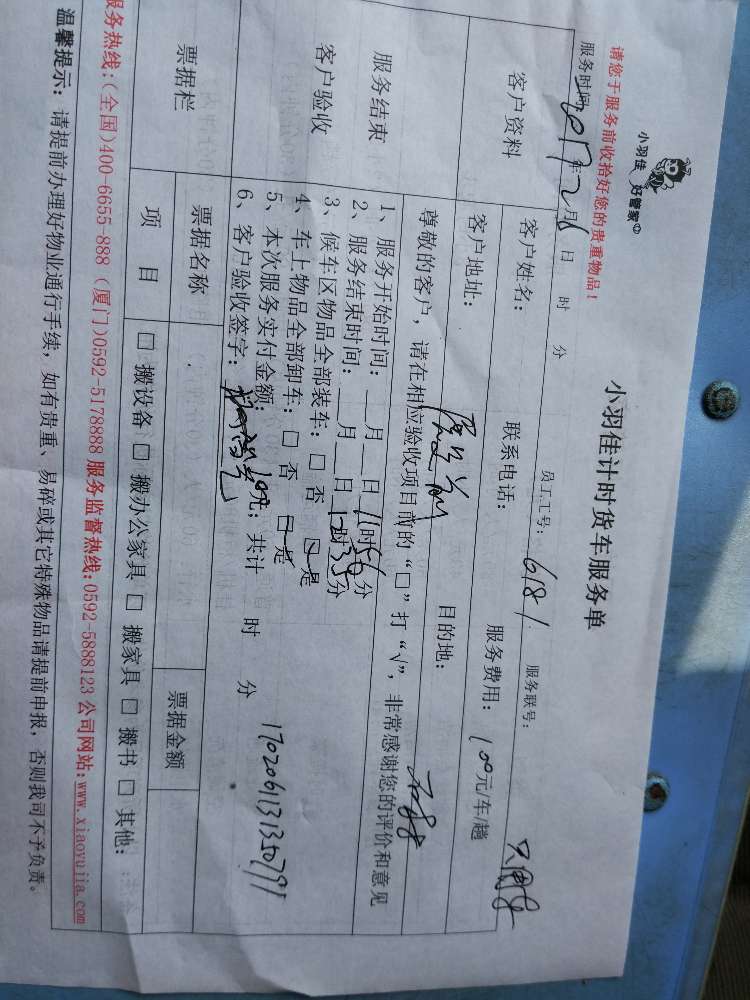 小羽佳 好管家
小羽佳计时货车服务单
请您于服务前收拾好您的贵重物品！
服务时间 2017年2月6日 时 分 员工工号：6181 服务联号：
客户资料
客户姓名： 联系电话： 服务费用：100元/车/趟
客户地址： 目的地：
尊敬的客户，请在相应验收项目前的“□”打“√”，非常感谢您的评价和意见
服务结束
客户验收
1、服务开始时间：__月__日11时56分
2、服务结束时间：__月__日12时35分
3、候车区物品全部装车：□ 否 □ 是
4、车上物品全部卸车：□ 否 □ 是
5、本次服务实付金额：100元；共计 时 分
6、客户验收签字：
17020611313507791
票据栏
票据名称 票据金额
项 目 □ 搬设备 □ 搬办公家具 □ 搬家具 □ 搬书 □ 其他：
服务热线：(全国)400-6655-888 (厦门)0592-5178888 服务监督热线：0592-5888123 公司网站：www.xiaoyujia.com
温馨提示：请提前办理好物业通行手续，如有贵重、易碎或其它特殊物品请提前申报，否则我司不予负责。